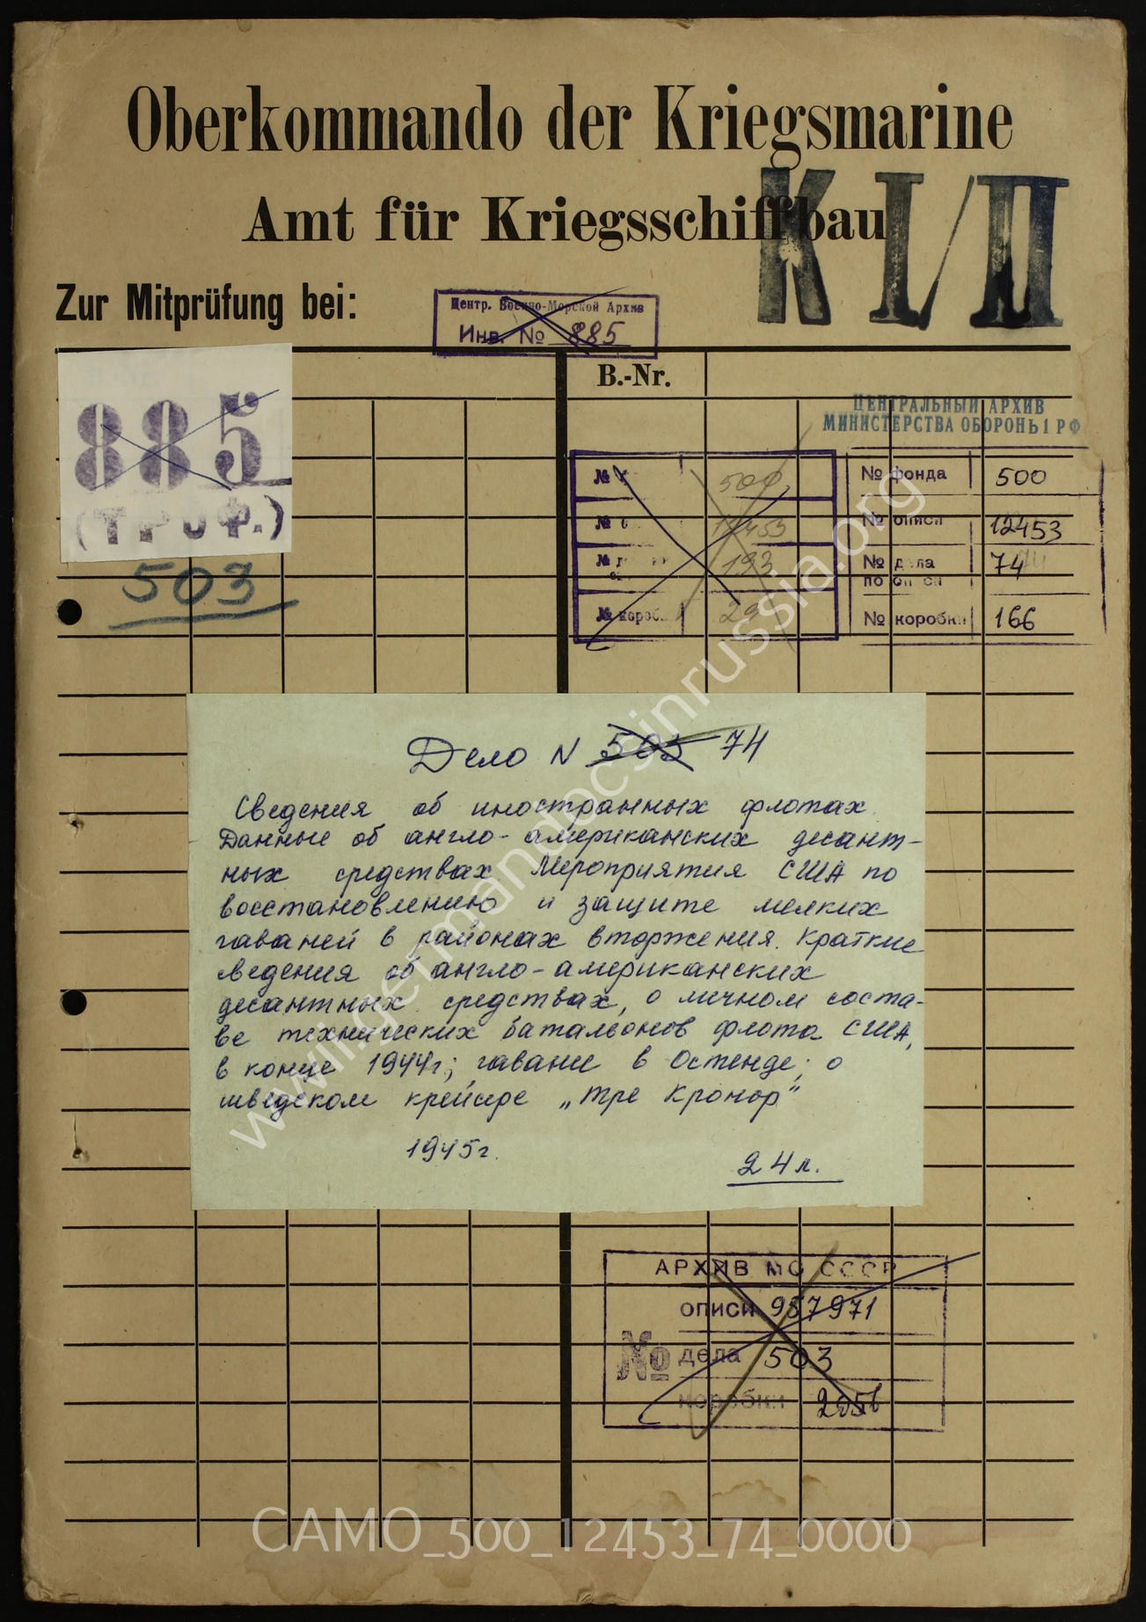 Oberkommando der Kriegsmarine
Amt für Kriegsschiffbau
K I/II
Zur Mitprüfung bei:
Центр. Военно-Морской Архив
Инв. № 885
B.-Nr.
885
(ТРОФ.)
503
ЦЕНТРАЛЬНЫЙ АРХИВ
МИНИСТЕРСТВА ОБОРОНЫ РФ
№ 500
№ 12453
№ 193
№ короб. 29
№ фонда 500
№ описи 12453
№ дела 74
по описи
№ коробки 166
Дело N 503 74
Сведения об иностранных флотах.
Данные об англо-американских десант-
ных средствах Мероприятия США по
восстановлению и защите мелких
гаваней в районах вторжения. Краткие
сведения об англо-американских
десантных средствах, о личном соста-
ве технических батальонов флота США,
в конце 1944г; гавани в Остенде; о
шведском крейсере „Тре Кронор"
1945г.
24л.
АРХИВ МО СССР
описи 957971
№ дела 503
коробки
www.germandocsinrussia.org
CAMO_500_12453_74_0000